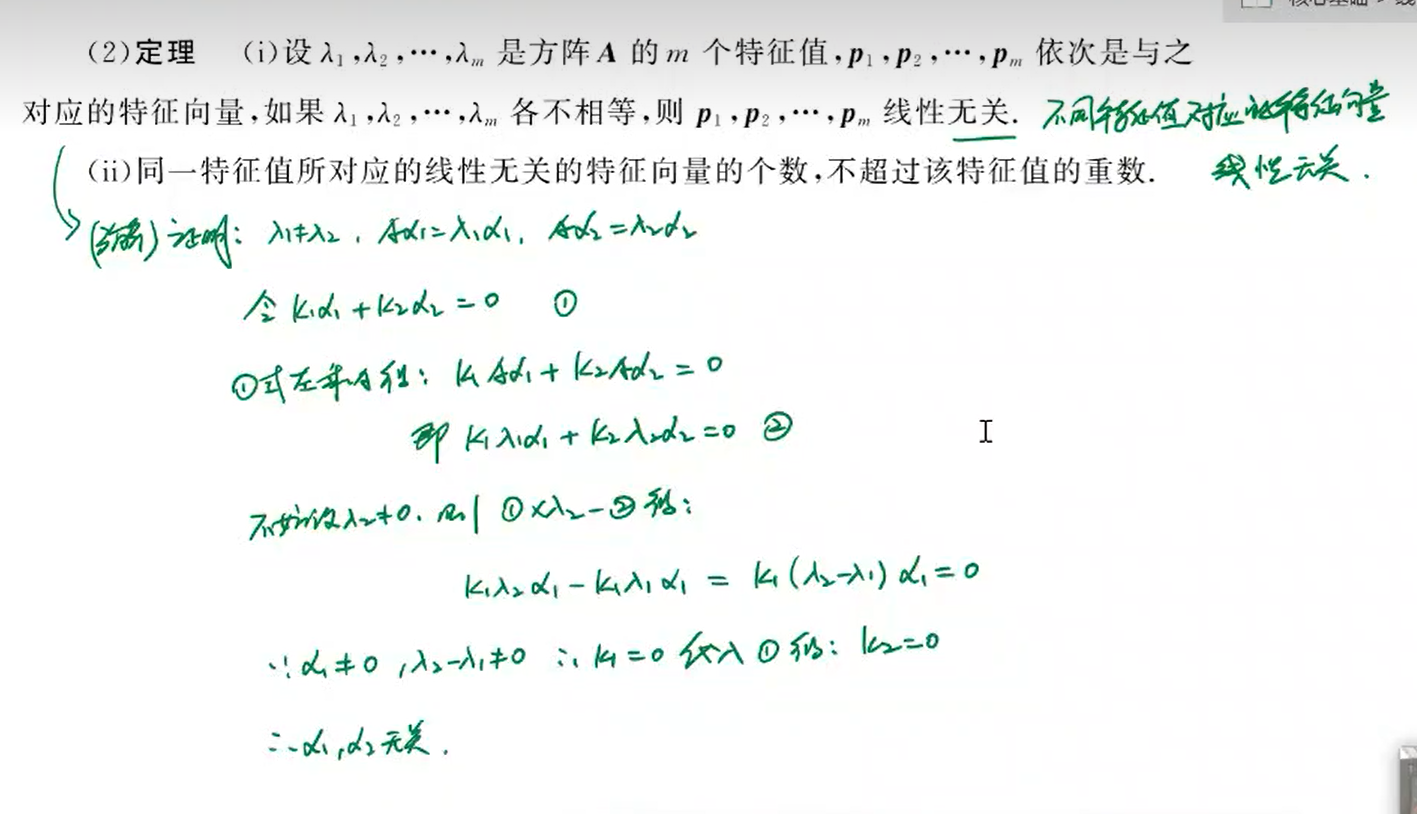 (2)定理 (i)设 λ₁,λ₂,…,λₘ 是方阵 A 的 m 个特征值,p₁,p₂,…,pₘ 依次是与之
对应的特征向量,如果 λ₁,λ₂,…,λₘ 各不相等,则 p₁,p₂,…,pₘ 线性无关. 不同特征值对应的特征向量
(ii)同一特征值所对应的线性无关的特征向量的个数,不超过该特征值的重数. 线性无关.
证明: λ₁≠λ₂, Aα₁=λ₁α₁, Aα₂=λ₂α₂
令 k₁α₁+k₂α₂=0 ①
①式左乘A得: k₁Aα₁+k₂Aα₂=0
即 k₁λ₁α₁+k₂λ₂α₂=0 ②
不妨设λ₂≠0. 则 ①×λ₂-②得:
k₁λ₂α₁-k₁λ₁α₁ = k₁(λ₂-λ₁)α₁=0
∵α₁≠0,λ₂-λ₁≠0 ∴k₁=0 代入①得: k₂=0
∴α₁,α₂无关.